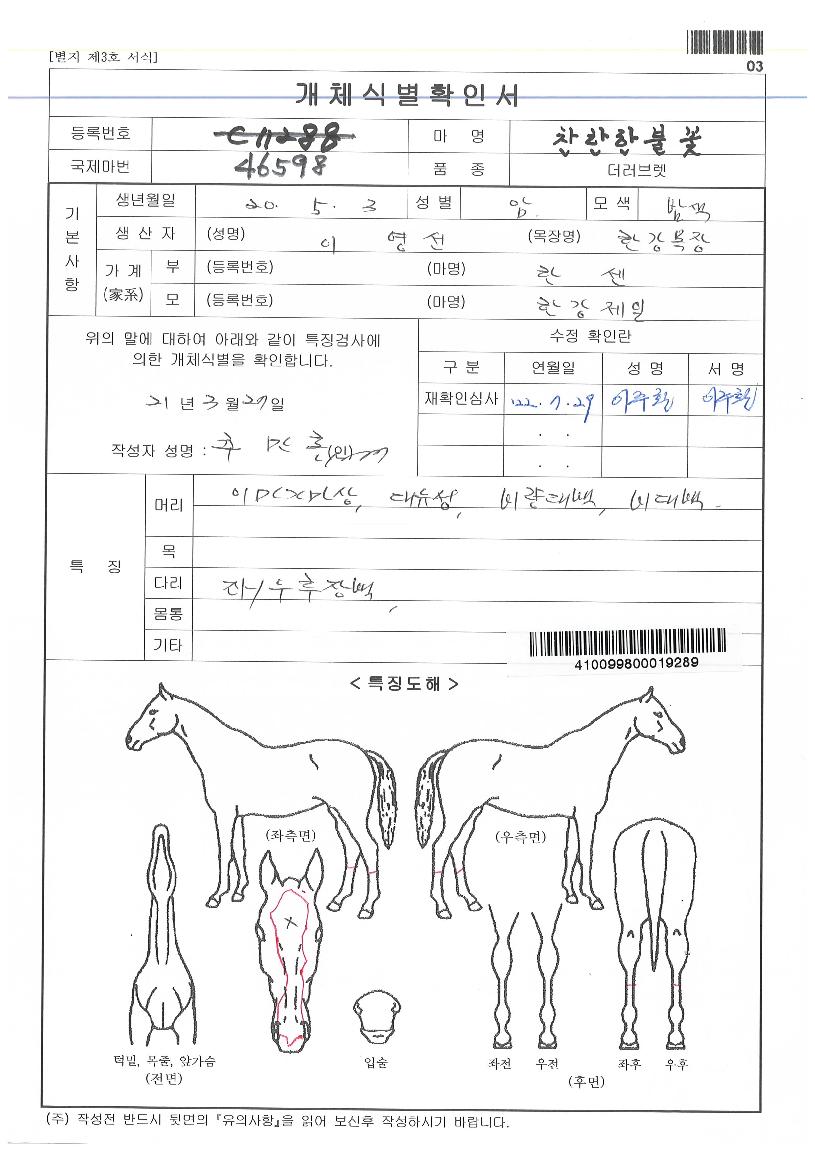 [별지 제3호 서식]
03
개체식별확인서
등록번호 마 명 찬란한불꽃
국제마번 46598 품 종 더러브렛
기본사항
생년월일 20. 5. 3 성 별 암 모 색 밤색
생 산 자 (성명) 이 영 선 (목장명) 한강목장
가 계 (家系) 부 (등록번호) (마명) 한 센
모 (등록번호) (마명) 한강제일
위의 말에 대하여 아래와 같이 특징검사에
의한 개체식별을 확인합니다.
21 년 3 월 27 일
작성자 성명 : (인)
수정 확인란
구 분 연월일 성 명 서 명
재확인심사 '22. 7. 29
. .
. .
특 징
머리 이마×마상, 대유성, 비량대백, 비대백.
목
다리 좌/우후장백,
몸통
기타
410099800019289
< 특징도해 >
(좌측면) (우측면)
턱밑, 목줄, 앞가슴
(전면)
입술
좌전 우전 좌후 우후
(후면)
(주) 작성전 반드시 뒷면의 『유의사항』을 읽어 보신후 작성하시기 바랍니다.